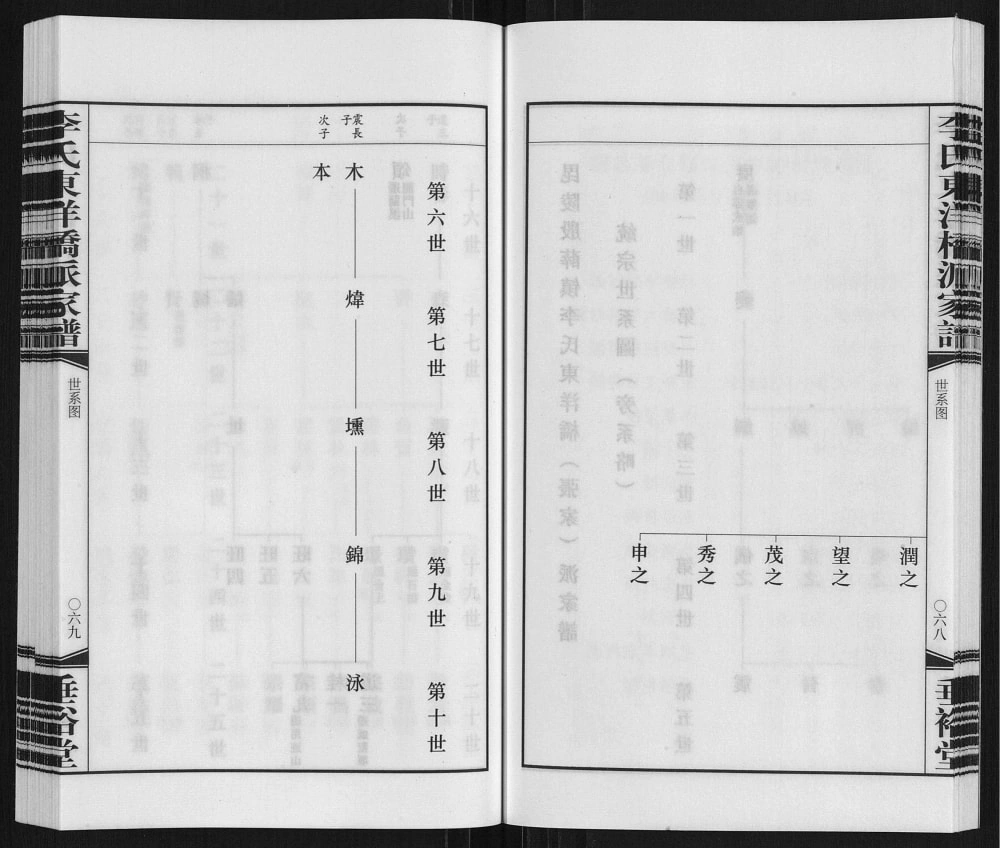 李氏東洋橋派家譜
世系图
〇六八
垂裕堂
潤之
望之
茂之
秀之
申之
第六世
第七世
第八世
第九世
第十世
震長子
木
煒
壎
錦
泳
次子
本
李氏東洋橋派家譜
世系图
〇六九
垂裕堂